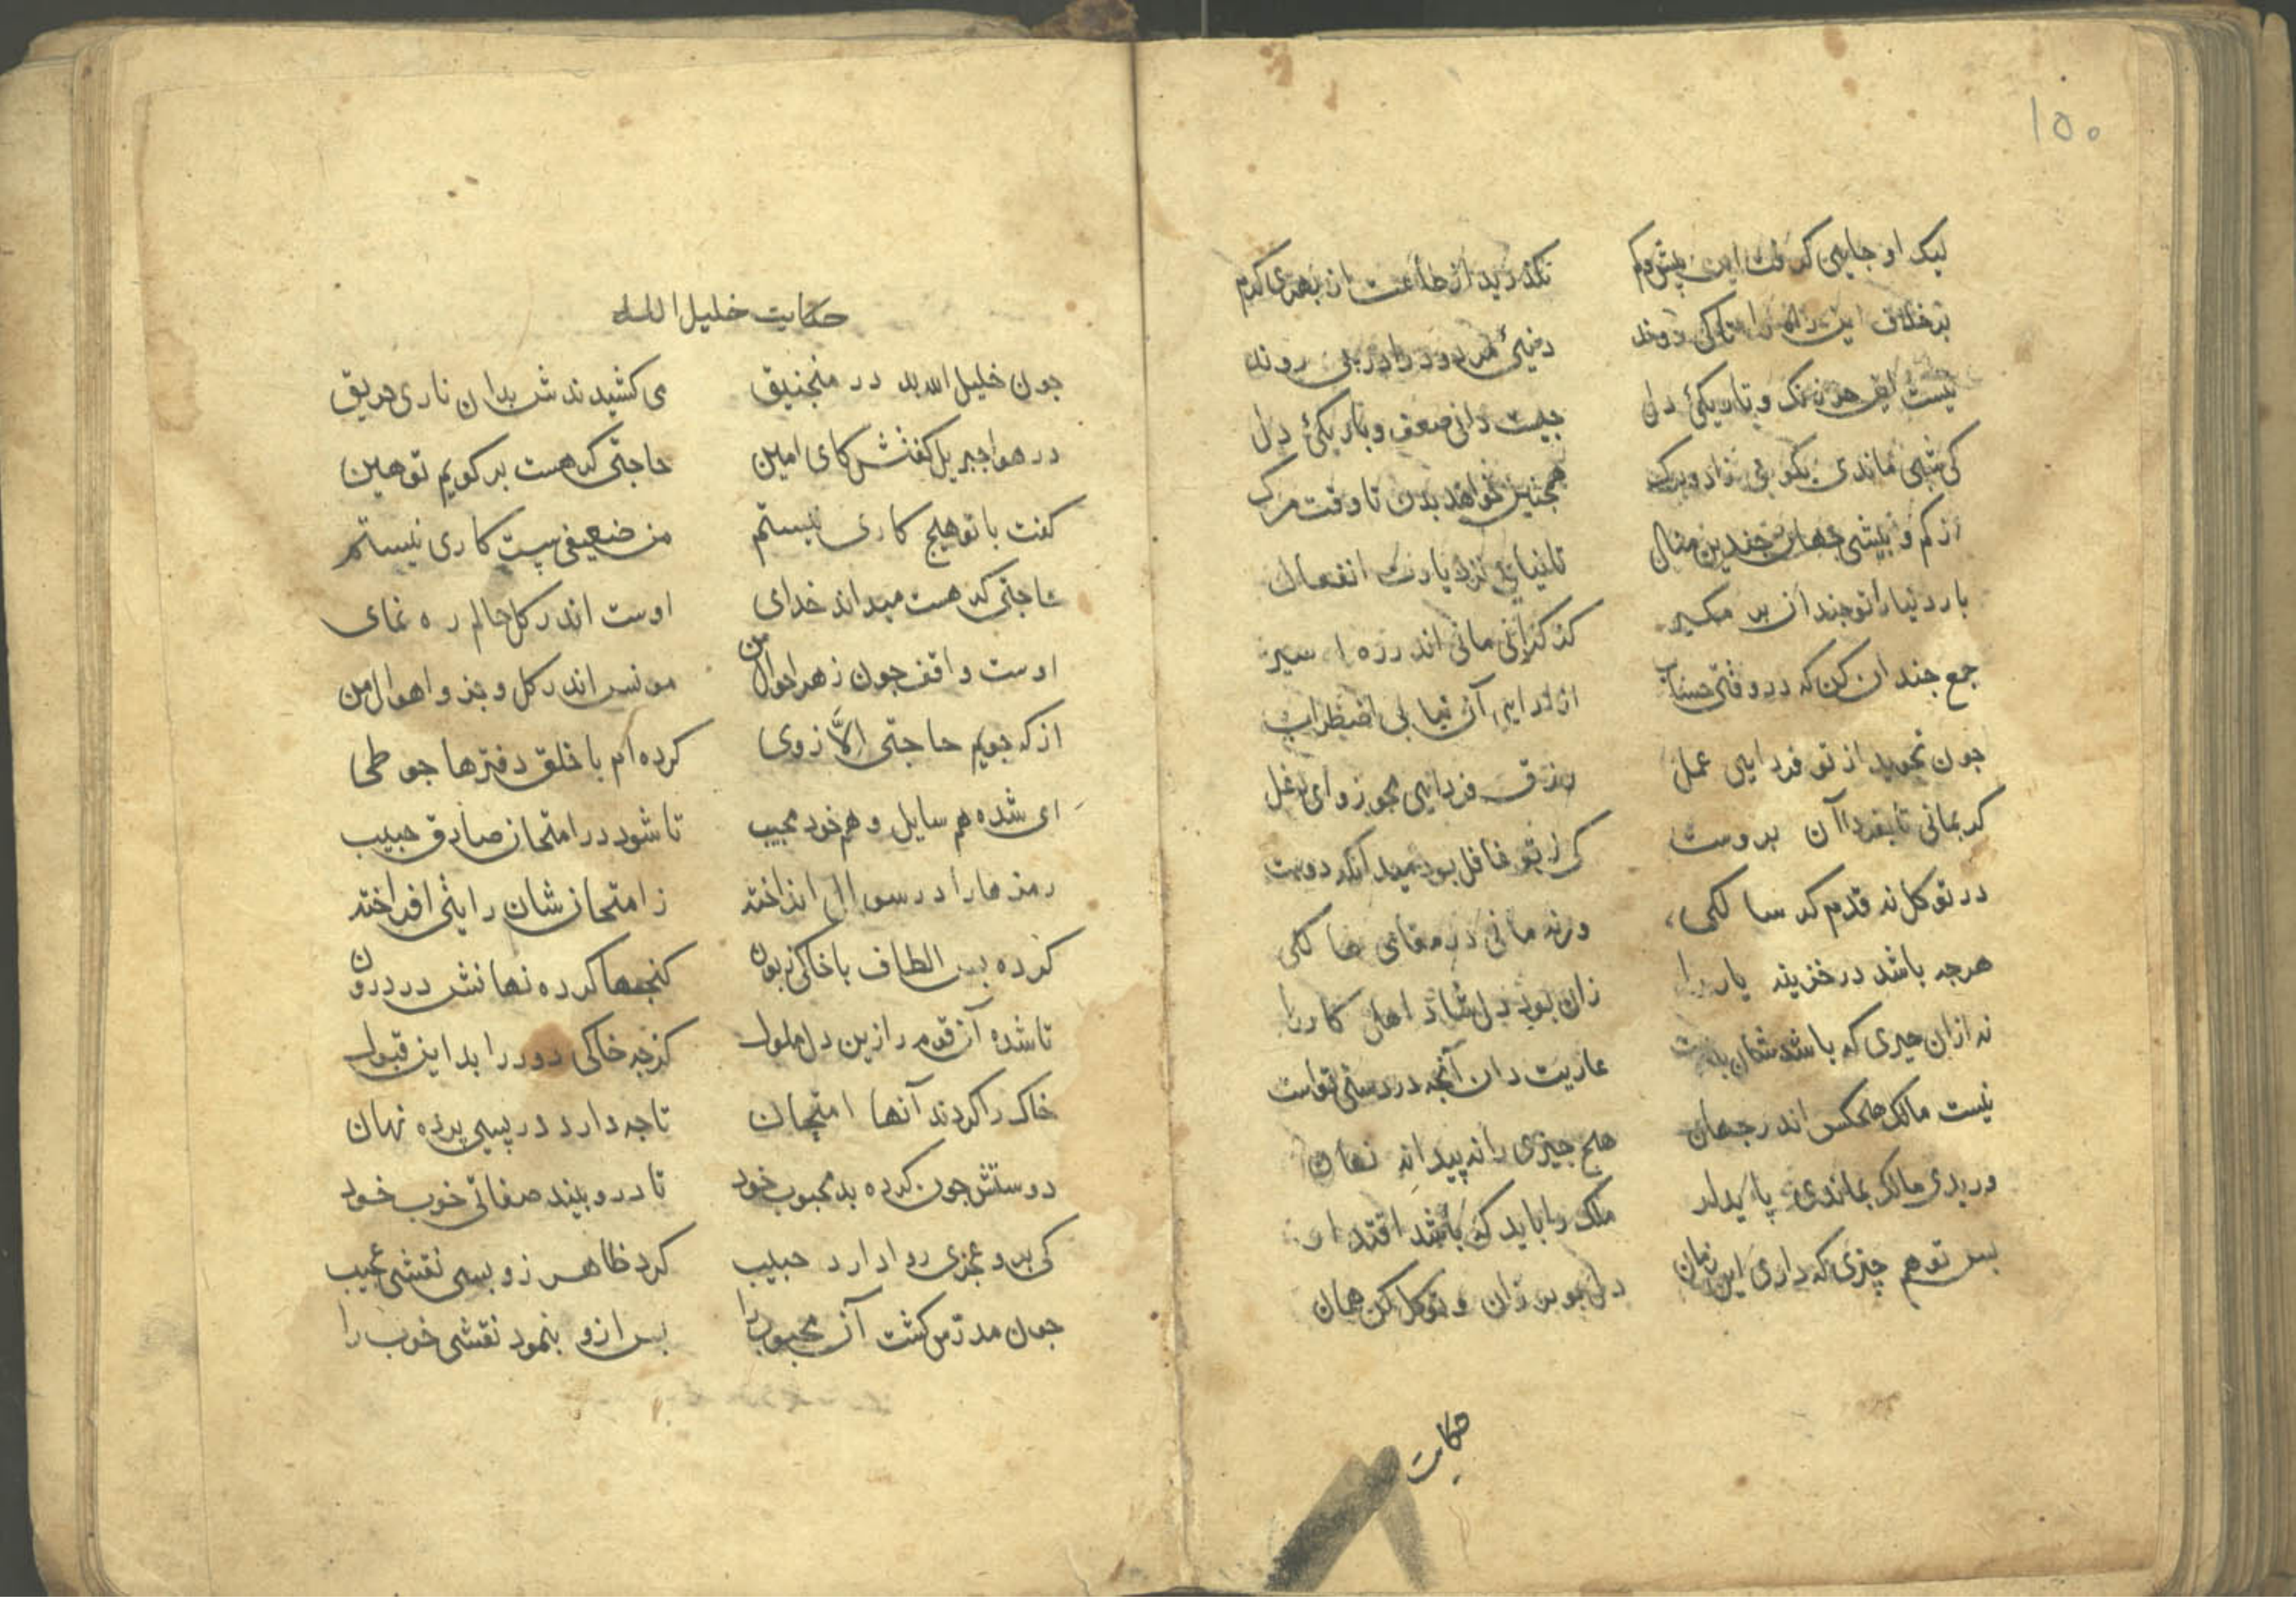 ۱۵۰
لیک او جایی کرفت این بیش و کم نکذرید از طاعت از بهری کرم
بر خلاف این
نیست این هر ز ننک و تاریکئ دل چیست دانی ضعف و تاریکئ دل
کی شبی ماندی بکو بی زاد وبرک همچنین خواهد بدن تا وقت مرک
از کم و بیشی جهان چندین منال تا نیابی نزد یارت انفعال
بار دنیا را تو چندان بر مکیر کز کرانی مانی اندر ره اسیر
جمع چندان کن که در وقتی حساب از در ایی آن نیابی اضطراب
جون نجوید از تو فردایی عمل رزق فردایی مجو زو ای دغل
کر بمانی تا بفردا آن بروست کی ز تو غافل بود میدانکه دوست
در توکل نه قدم کر سالکی ورنه مانی در مقامی هالکی
هرچه باشد در خزینه یار را زان بود دل شاد اهل کار را
نه ازان چیزی که باشدشان بدست عاریت دان آنچه در دستی تو است
نیست مالک هیچکس اندر جهان هیچ چیزی را نه پیدا نه نهان
ور بدی مالک بماندی پایدار ملک را باید که باشد اقتدار
بس تو هم چیزی که داری این زمان دل مجو بر زان و توکل کن همان
حکایت
حکایت خلیل الله
جون خلیل الله بد در منجنیق می کشیدندش بدان ناری حریق
در هوا جبریل کفتش کای امین حاجتی که هست بر کویم تو هین
کفت با تو هیچ کاری نیستم من ضعیفی پست کاری نیستم
حاجتی که هست میداند خدای اوست اندر کل حالم ره نمای
اوست واقف جون ز هر احوال من مونس اندر کل و جز و اهوال من
از که جویم حاجتی الّا زوی کرده ام با خلق دفترها جو طی
ای شده هم سایل و هم خود مجیب تا شود در امتحان صادق حبیب
رمزها را در سوال انداخته ز امتحان شان رایتی افراخته
کرده بس الطاف با خاکی زبون کنجها کرده نهانش در درون
تا شده آن قوم رازین دل ملول کز چه خاکی دور را بد این قبول
خاک را کردند آنها امتحان تا جه دارد در پسی پرده نهان
دوستش جون کرده بد محبوب خود تا درو بیند صفاتی خوب خود
کی برو عجزی روا دارد حبیب کرد ظاهر زو بسی نقشی عجیب
جون مدرّس کشت آن محبوب را بس ازو بنمود نقشی خوب را